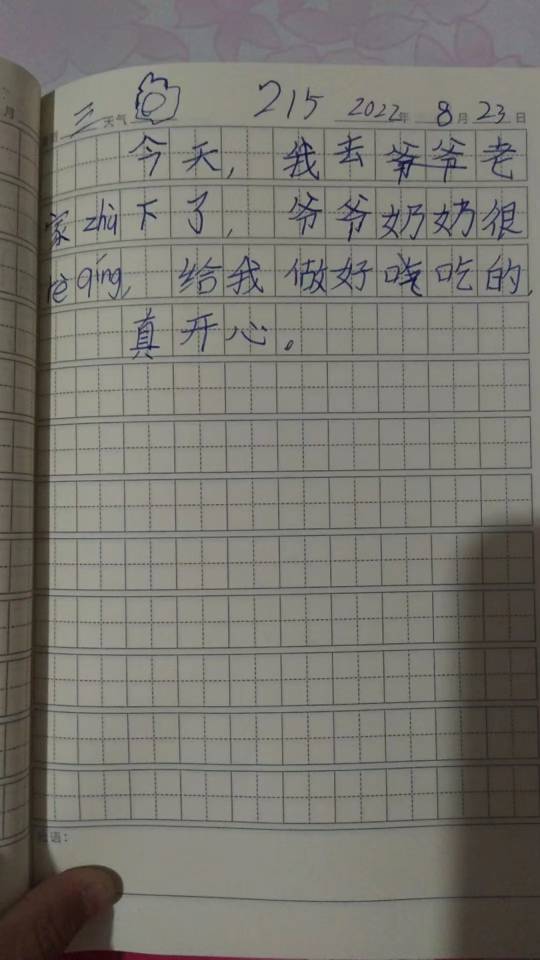 三 天气 215 2022年 8月23日
今天，我去爷爷老
家zhù下了，爷爷奶奶很
rè qíng，给我做好吃的，
真开心。